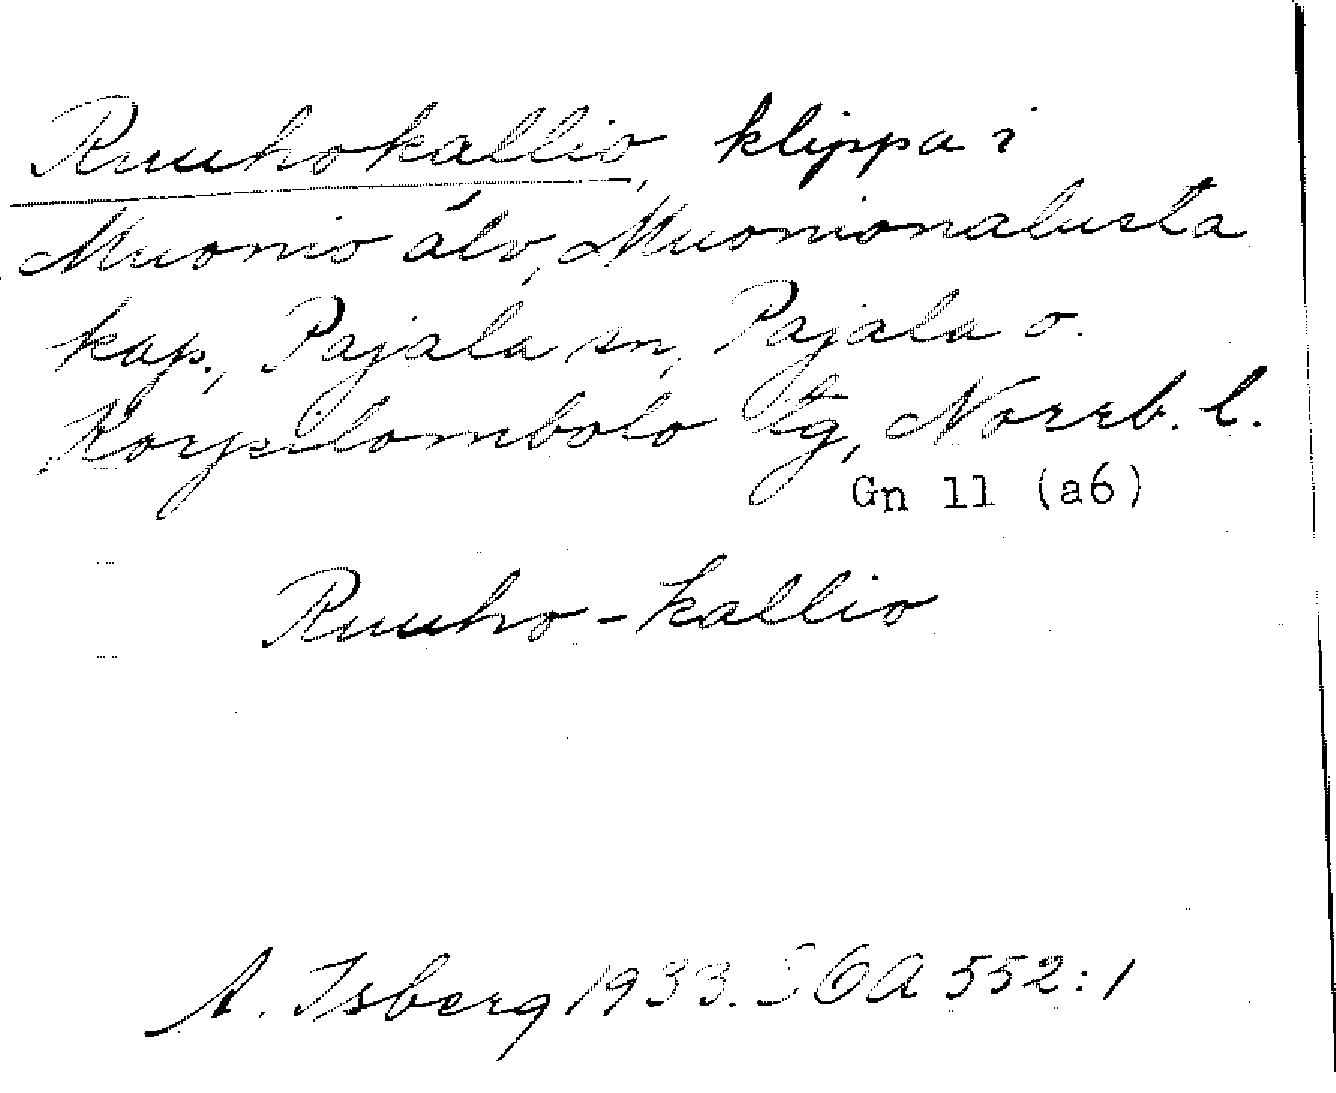 Ruuhokallio, klippa i
Muonio älv, Muonionalusta
kap., Pajala sn, Pajala o.
Korpilombolo tg, Norrb. l.
Gn 11 (a6)
Ruuho-kallio
A. Isberg 1933. SOA 552:1